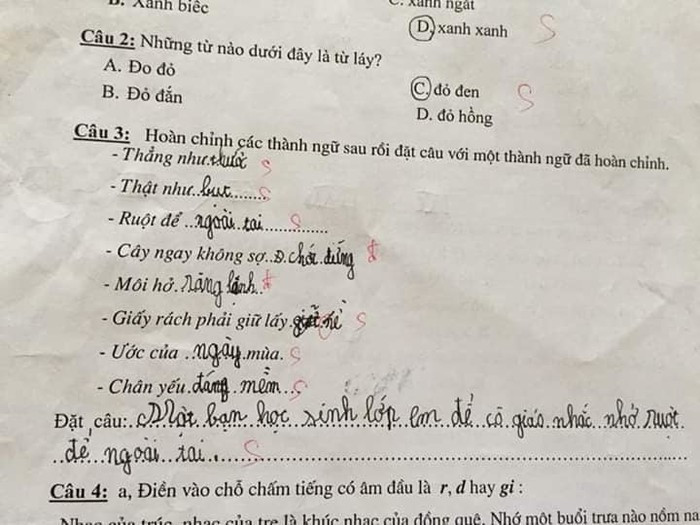 B. Xanh biếc
C. xanh ngát
D. xanh xanh S
Câu 2: Những từ nào dưới đây là từ láy?
A. Đo đỏ
C. đỏ đen S
B. Đỏ đắn
D. đỏ hồng
Câu 3: Hoàn chỉnh các thành ngữ sau rồi đặt câu với một thành ngữ đã hoàn chỉnh.
- Thẳng như thước S
- Thật như.. ........ S
- Ruột để ..ngoài..tai.............. S
- Cây ngay không sợ..Đ.chết.đứng đ
- Môi hở.răng lạnh. đ
- Giấy rách phải giữ lấy. S
- Ước của ..ngày.mùa. S
- Chân yếu.đá.mềm... S
Đặt câu:..Một..bạn..học..sinh..lớp..em..để..cô..giáo..nhắc..nhở.ruột.
..để..ngoài..tai...... S
Câu 4: a, Điền vào chỗ chấm tiếng có âm đầu là r, d hay gi :
Nhạc của trúc, nhạc của tre là khúc nhạc của đồng quê. Nhớ một buổi trưa nào nồm na